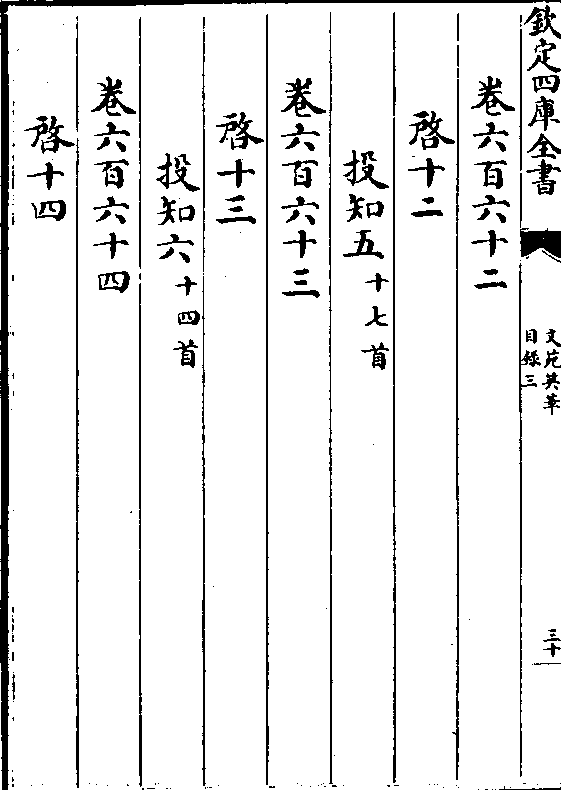 欽定四庫全書
文苑英華
目錄三
三十
卷六百六十二
啓十二
投知五十七首
卷六百六十三
啓十三
投知六十四首
卷六百六十四
啓十四